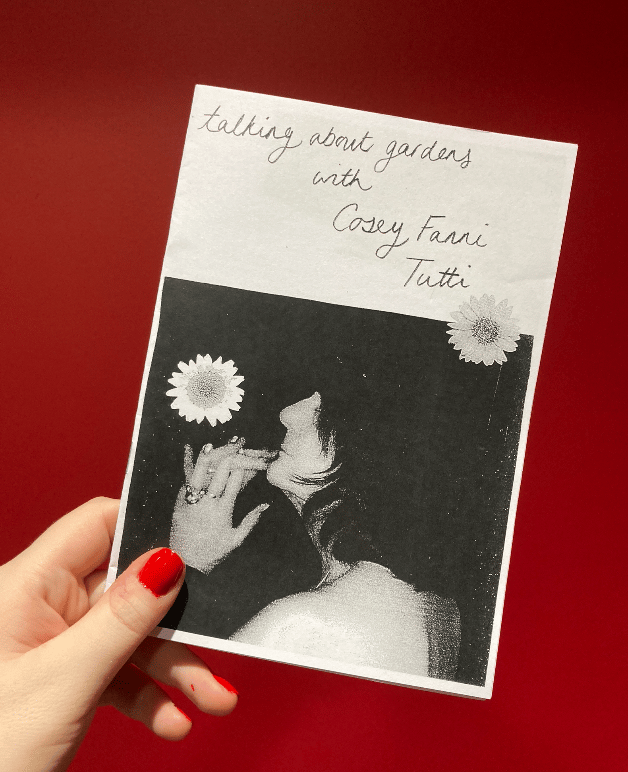 talking about gardens
with
Cosey Fanni
Tutti